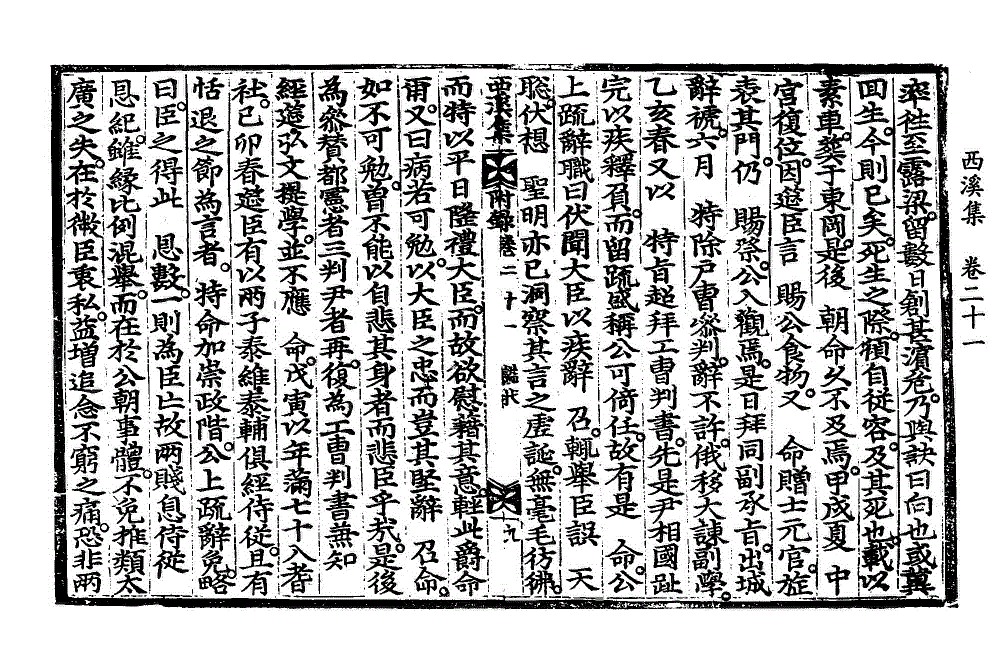 西溪集 卷二十一
率往至露梁。留數日創甚濱危。乃與訣曰向也或冀
回生。今則已矣。死生之際。頓自從容。及其死也。載以
素車。葬于東岡。是後 朝命久不及焉。甲戌夏 中
宮復位。因筵臣言 賜公食物。又 命贈士元官。旌
表其門。仍 賜祭。公入觀焉。是日拜同副承旨。出城
辭褫。六月 特除戶曹參判。辭不許。俄移大諫,副學。
乙亥春又以 特旨超拜工曹判書。先是尹相國趾
完以疾釋負。而留疏盛稱公可倚任。故有是 命。公
上疏辭職曰伏聞大臣以疾辭 召。輒舉臣誤 天
聡。伏想 聖明亦已洞察其言之虛誕。無毫毛彷彿。
西溪集 附錄 卷二十一 諡狀 十九
而特以平日隆禮大臣。而故欲慰藉其意。輕此爵命
爾。又曰病若可勉。以大臣之忠而豈其堅辭 召命。
如不可勉。曾不能以自悲其身者而悲臣乎哉。是後
為參贊都憲者三。判尹者再。復為工曹判書兼知
經筵弘文提學。並不應 命。戊寅以年滿七十入耆
社。己卯春筵臣有以兩子泰維泰輔俱經侍從。且有
恬退之節為言者。 特命加崇政階。公上疏辭免。略
曰。臣之得此 恩數。一則為臣亡故兩賤息侍從
恩紀。雖緣比例混舉。而在於公朝事體。不免推類太
廣之失。在於微臣衷私。益增追念不窮之痛。恐非兩